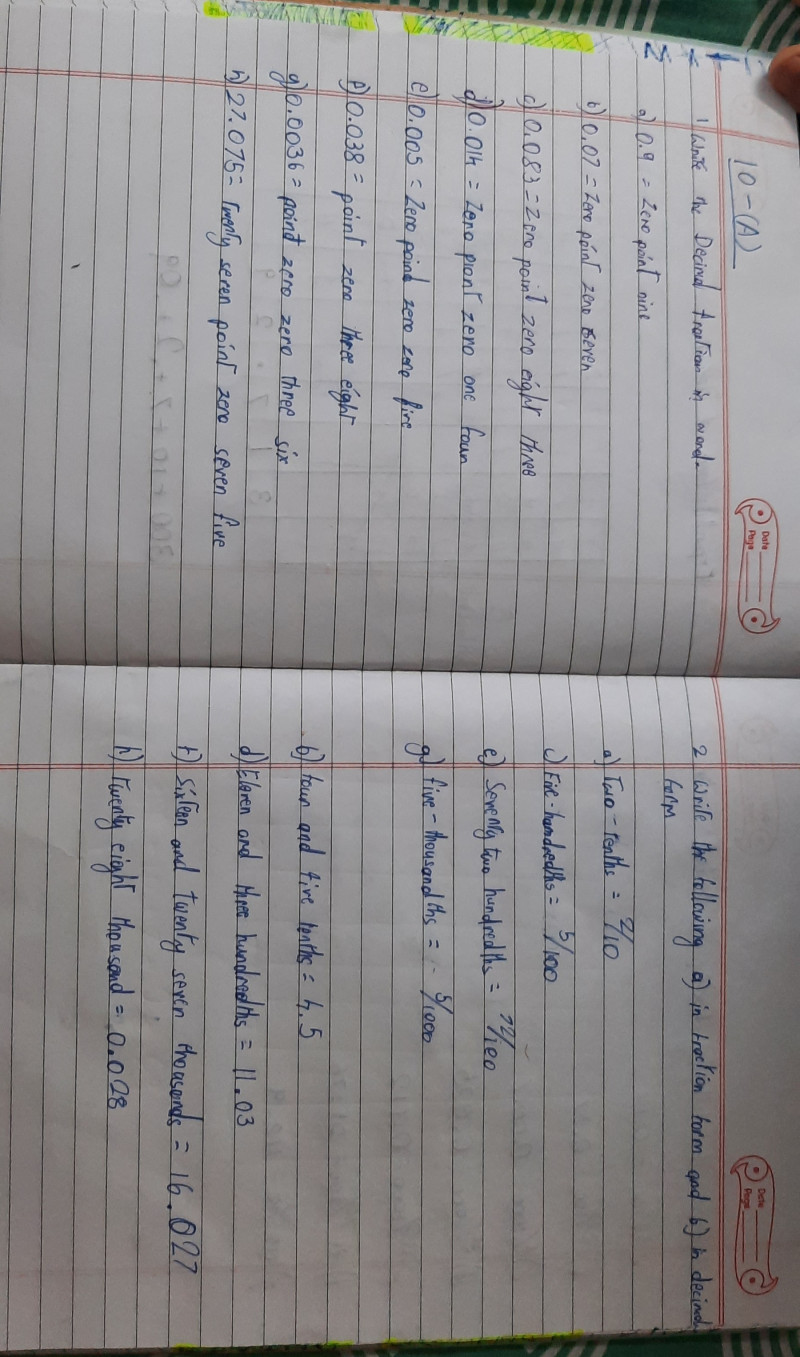 10-(A)
Date
Page
1 Write the Decimal fraction in word.
a) 0.9 = Zero point nine
b) 0.07 = Zero point zero seven
c) 0.083 = Zero point zero eight three
d) 0.014 = Zero piont zero one four
e) 0.005 = Zero point zero zero five
f) 0.038 = point zero three eight
g) 0.0036 = point zero zero three six
h) 27.075 = Twenty seven point zero seven five
Date
Page
2 Write the following a) in fraction form and b) in decimal
form
a) Two-tenths = 2/10
c) Five-hundredths = 5/100
e) Seventy two hundredths = 72/100
g) five-thousandths = 5/1000
b) four and five tenths = 4.5
d) Eleven and three hundredths = 11.03
f) Sixteen and twenty seven thousands = 16.027
h) Twenty eight thousand = 0.028